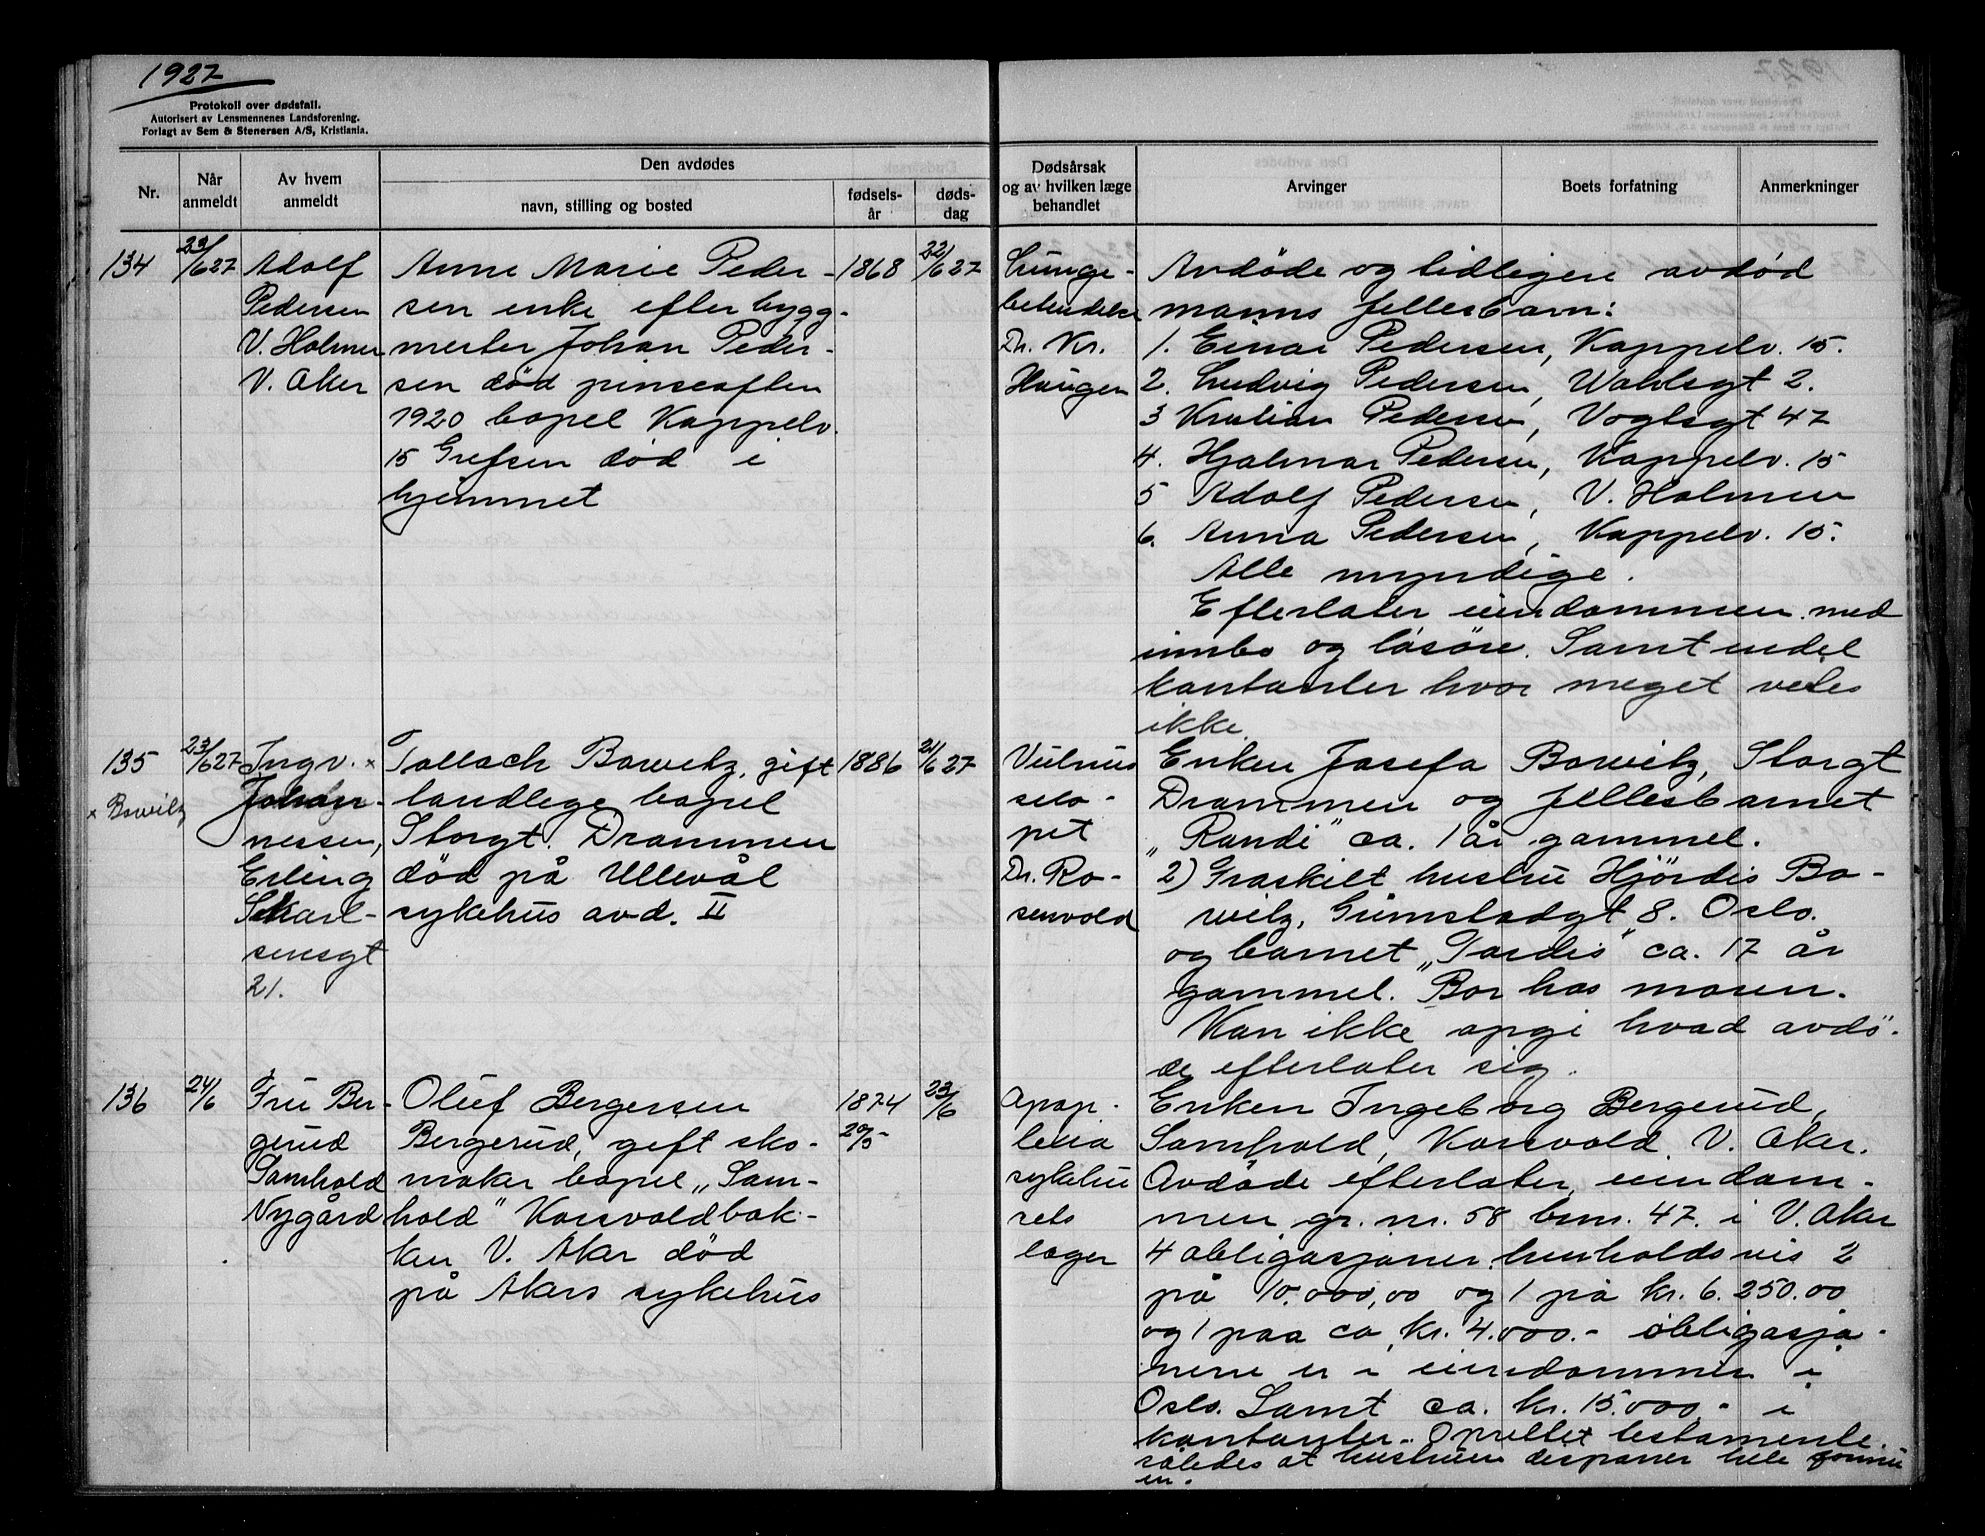 1927
Protokoll over dødsfall.
Autorisert av Lensmennenes Landsforening.
Forlagt av Sem & Stenersen A/S, Kristiania.
Nr.
Når anmeldt
Av hvem anmeldt
Den avdødes
navn, stilling og bosted
fødsels-år
døds-dag
Dødsårsak og av hvilken læge behandlet
Arvinger
Boets forfatning
Anmerkninger
134
23/6 27
Adolf
Pedersen
V. Holmen
V. Aker
Anne Marie Peder-
sen enke efter bygg-
mester Johan Peder-
sen død pinseaften
1920 bopel Kappelv.
15 Grefsen død i
hjemmet
1868
22/6 27
Lunge-
betendelse
Dr. Kr.
Haugen
Avdøde og tidligere avdød
manns fellesbarn:
1. Einar Pedersen, Kappelv. 15.
2. Ludvig Pedersen, Wahlsgt 2.
3 Kristian Pedersen, Vogtsgt 47
4. Hjalmar Pedersen, Kappelv. 15
5 Adolf Pedersen, V. Holmen
6. Anna Pedersen, Kappelv. 15.
Alle myndige.
Efterlater eiendommen med
innbo og løsøre. Samt endel
kontanter hvor meget vedes
ikke.
135
x Bowitz
23/6 27
Ingv. x
Johan-
nessen,
Erling
Skarl-
sensgt
21.
Tallach Bowitz, gift
tandlege bopel
Storgt. Drammen
død på Ullevål
sykehus avd. II
1886
21/6 27
Vulnus
sclo-
pet
Dr. Ro-
senvold
Enken Josefa Bowitz, Storgt
Drammen og fellesbarnet
„Randi" ca. 1 år gammel.
2) Fraskilt hustru Hjørdis Bo-
witz, Grimstadgt 8. Oslo.
og barnet „Tordis" ca. 17 år
gammel. Bor hos moren.
Kan ikke opgi hvad avdø-
de efterlater sig.
136
24/6
Fru Ber-
gerud
Samhold
Nygård
Oluf Bergersen
Bergerud, gift sko-
maker bopel „Sam-
hold" Korsvoldbak-
ken V. Aker død
på Akers sykehus
1874
20/5-
23/6
Apop-
lexia
sykehu
sets
læger
Enken Ingeborg Bergerud,
Samhold, Korsvold. V. Aker.
Avdøde efterlater eiendom-
men gr. nr. 58 brnr. 47. i V. Aker
4 obligasjoner henholdsvis 2
på 10.000,00 og 1 på kr. 6.250.00
og 1 paa ca kr. 4.000.- obligasjo-
nene er i eiendommer i
Oslo. Samt ca. kr. 15.000.- i
kontanter. Oprettet testamente.
således at hustruen disponer hele formu
en.